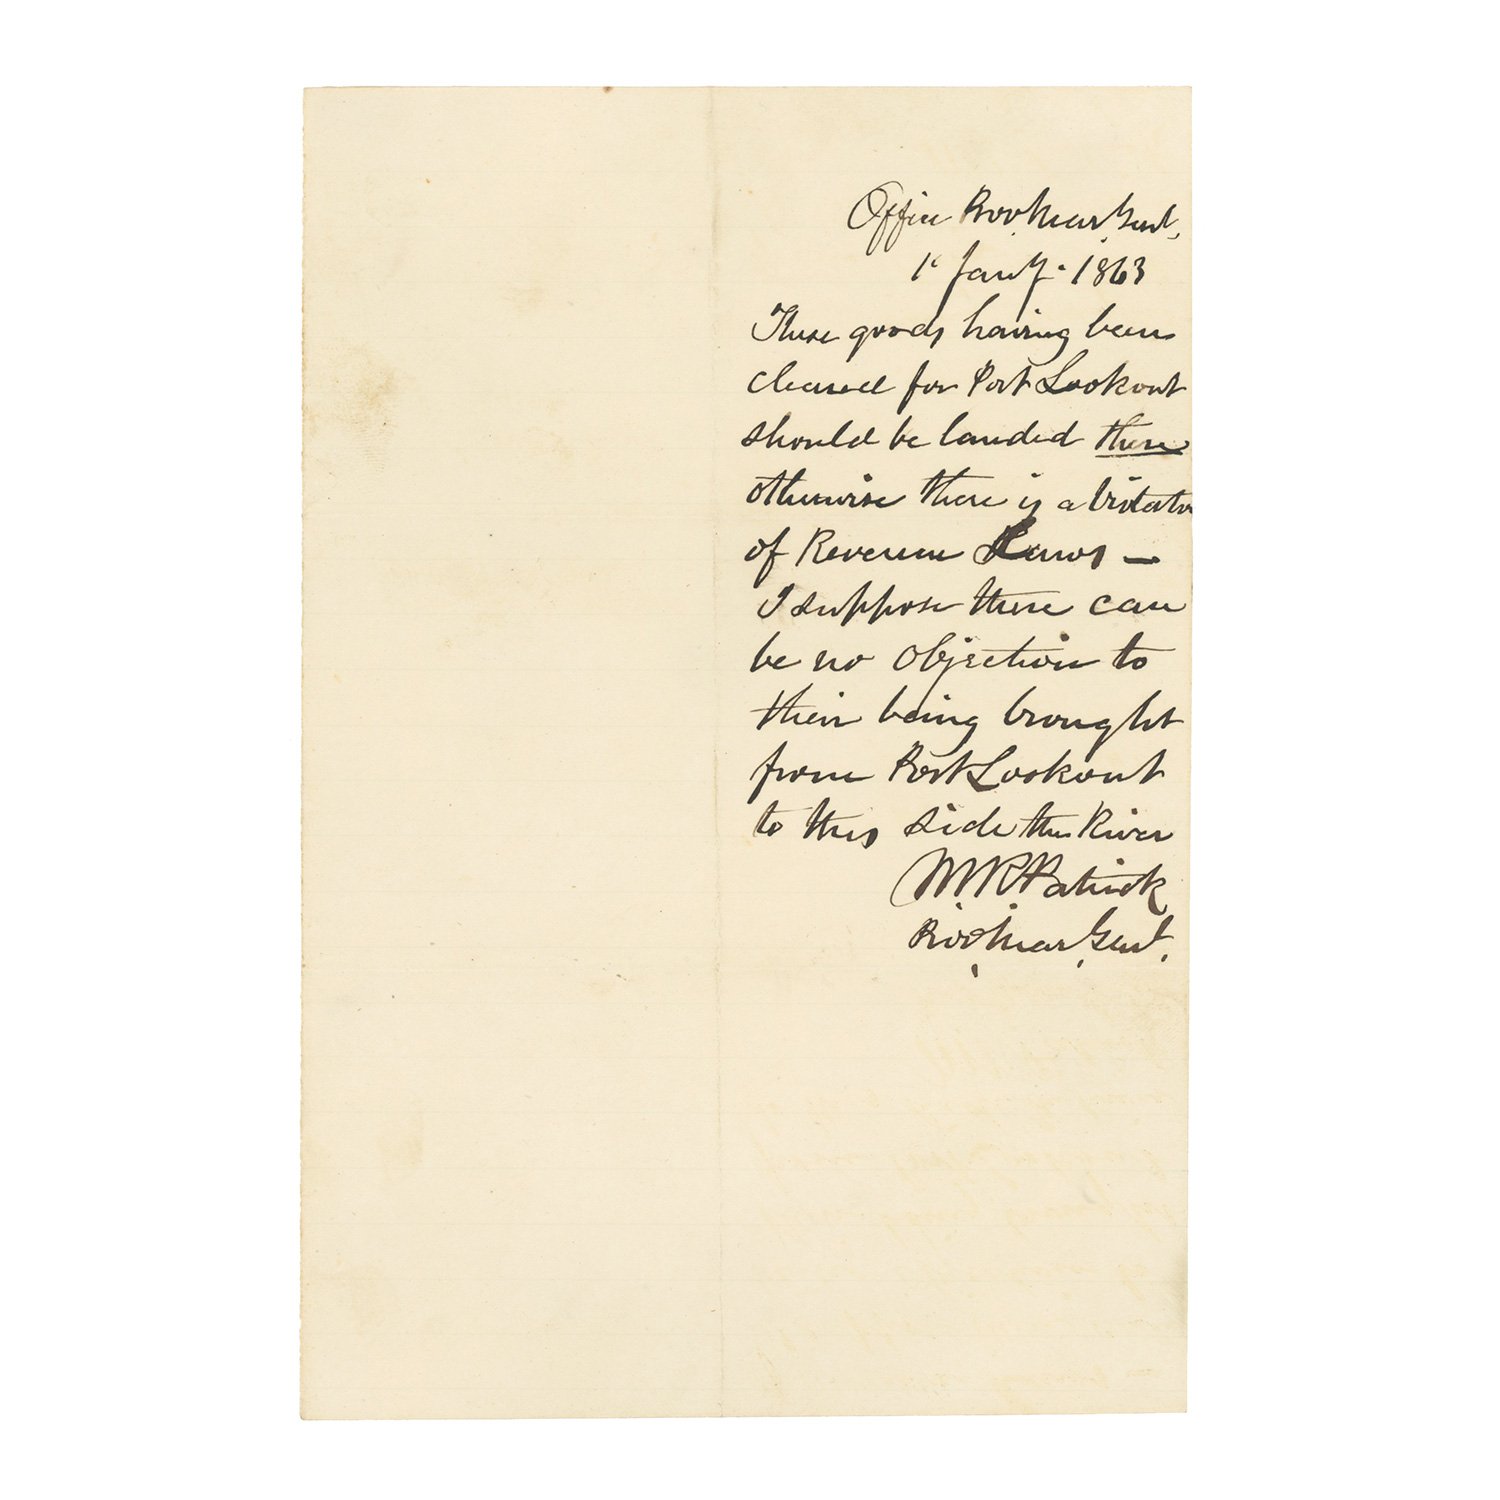 Office Prov. Mar. Genl,
1st Jany. 1863
These goods having been
cleared for Port Lookout
should be landed there
otherwise there is a Violation
of Revenue Laws —
I suppose there can
be no objection to
their being brought
from Port Lookout
to this side the River
M. R. Patrick
Prov. Mar. Genl.